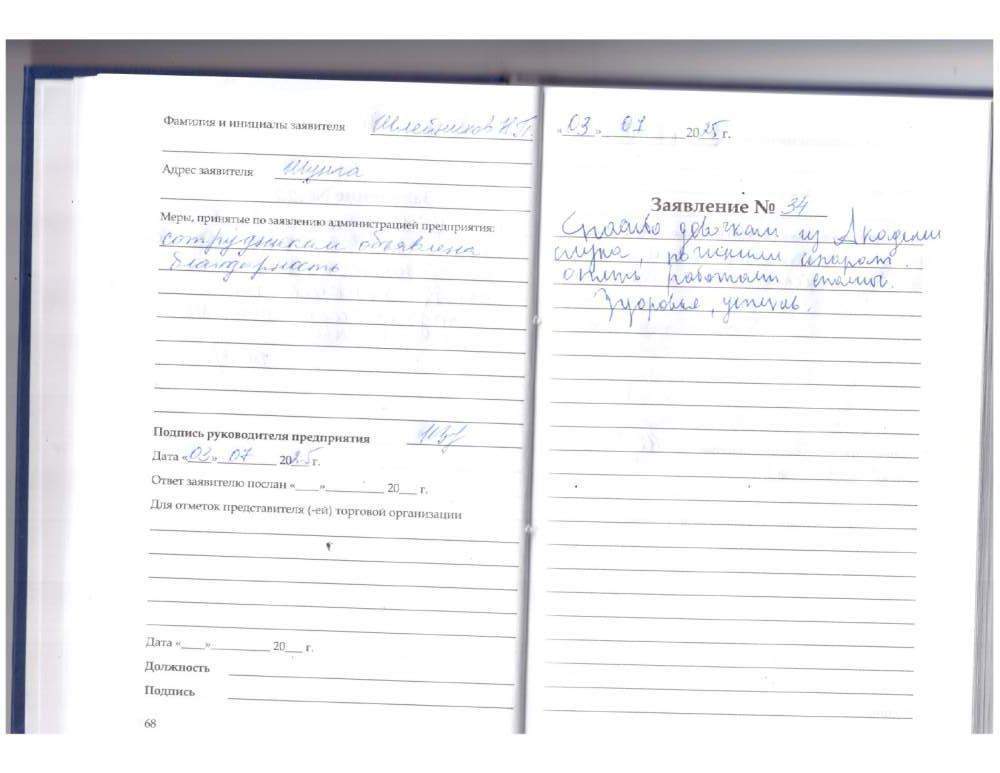 Фамилия и инициалы заявителя Шлейников Н.П.
Адрес заявителя Шунга
Меры, принятые по заявлению администрацией предприятия:
сотрудникам объявлена
благодарность
Подпись руководителя предприятия
Дата «03» 07 2025г.
Ответ заявителю послан «___»_________ 20___ г.
Для отметок представителя (-ей) торговой организации
Дата «___»_________ 20___ г.
Должность
Подпись
68
«03» 07 2025 г.
Заявление № 34
Спасибо девочкам из Академии
слуха, почистили аппарат.
опять работает
Здоровья, успехов.